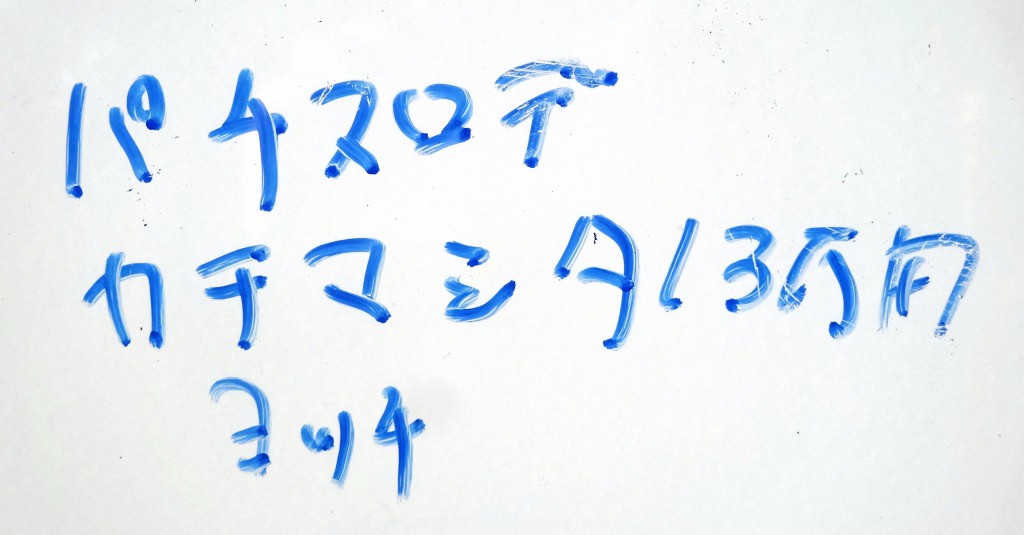 パチスロデ
カチマシタ13万円
ヨッチ